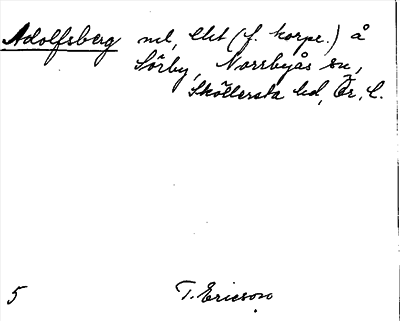 Adolfsberg nl, Ext (f. korpr.) å
Sörby, Norrbyås sn,
Sköllersta hd, Ör. l.
5 T. Ericson